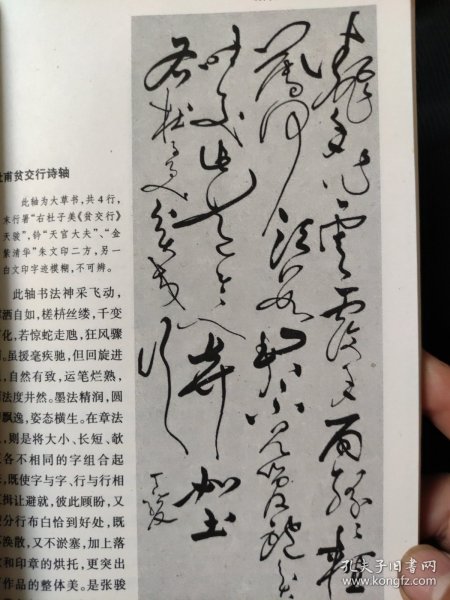 杜甫贫交行诗轴
此轴为大草书，共4行，
末行署“右杜子美《贫交行》
天骏”，钤“天官大夫”、“金
紫清华”朱文印二方，另一
白文印字迹模糊，不可辨。
此轴书法神采飞动，
洒自如，槎枿丝缕，千变
化，若惊蛇走虺，狂风骤
。虽援毫疾驰，但回旋进
，自然有致，运笔烂熟，
法度井然。墨法精润，圆
飘逸，姿态横生。在章法
，则是将大小、长短、欹
各不相同的字组合起
，既使字与字、行与行相
揖让避就，彼此顾盼，又
分行布白恰到好处，既
涣散，又不淤塞，加上落
和印章的烘托，更突出
作品的整体美。是张骏
翻手作雲覆手雨紛紛輕
薄何須數君不見管鮑貧
時交此道今人棄如土
右杜子美貧交行
天駿
孔夫子旧书网